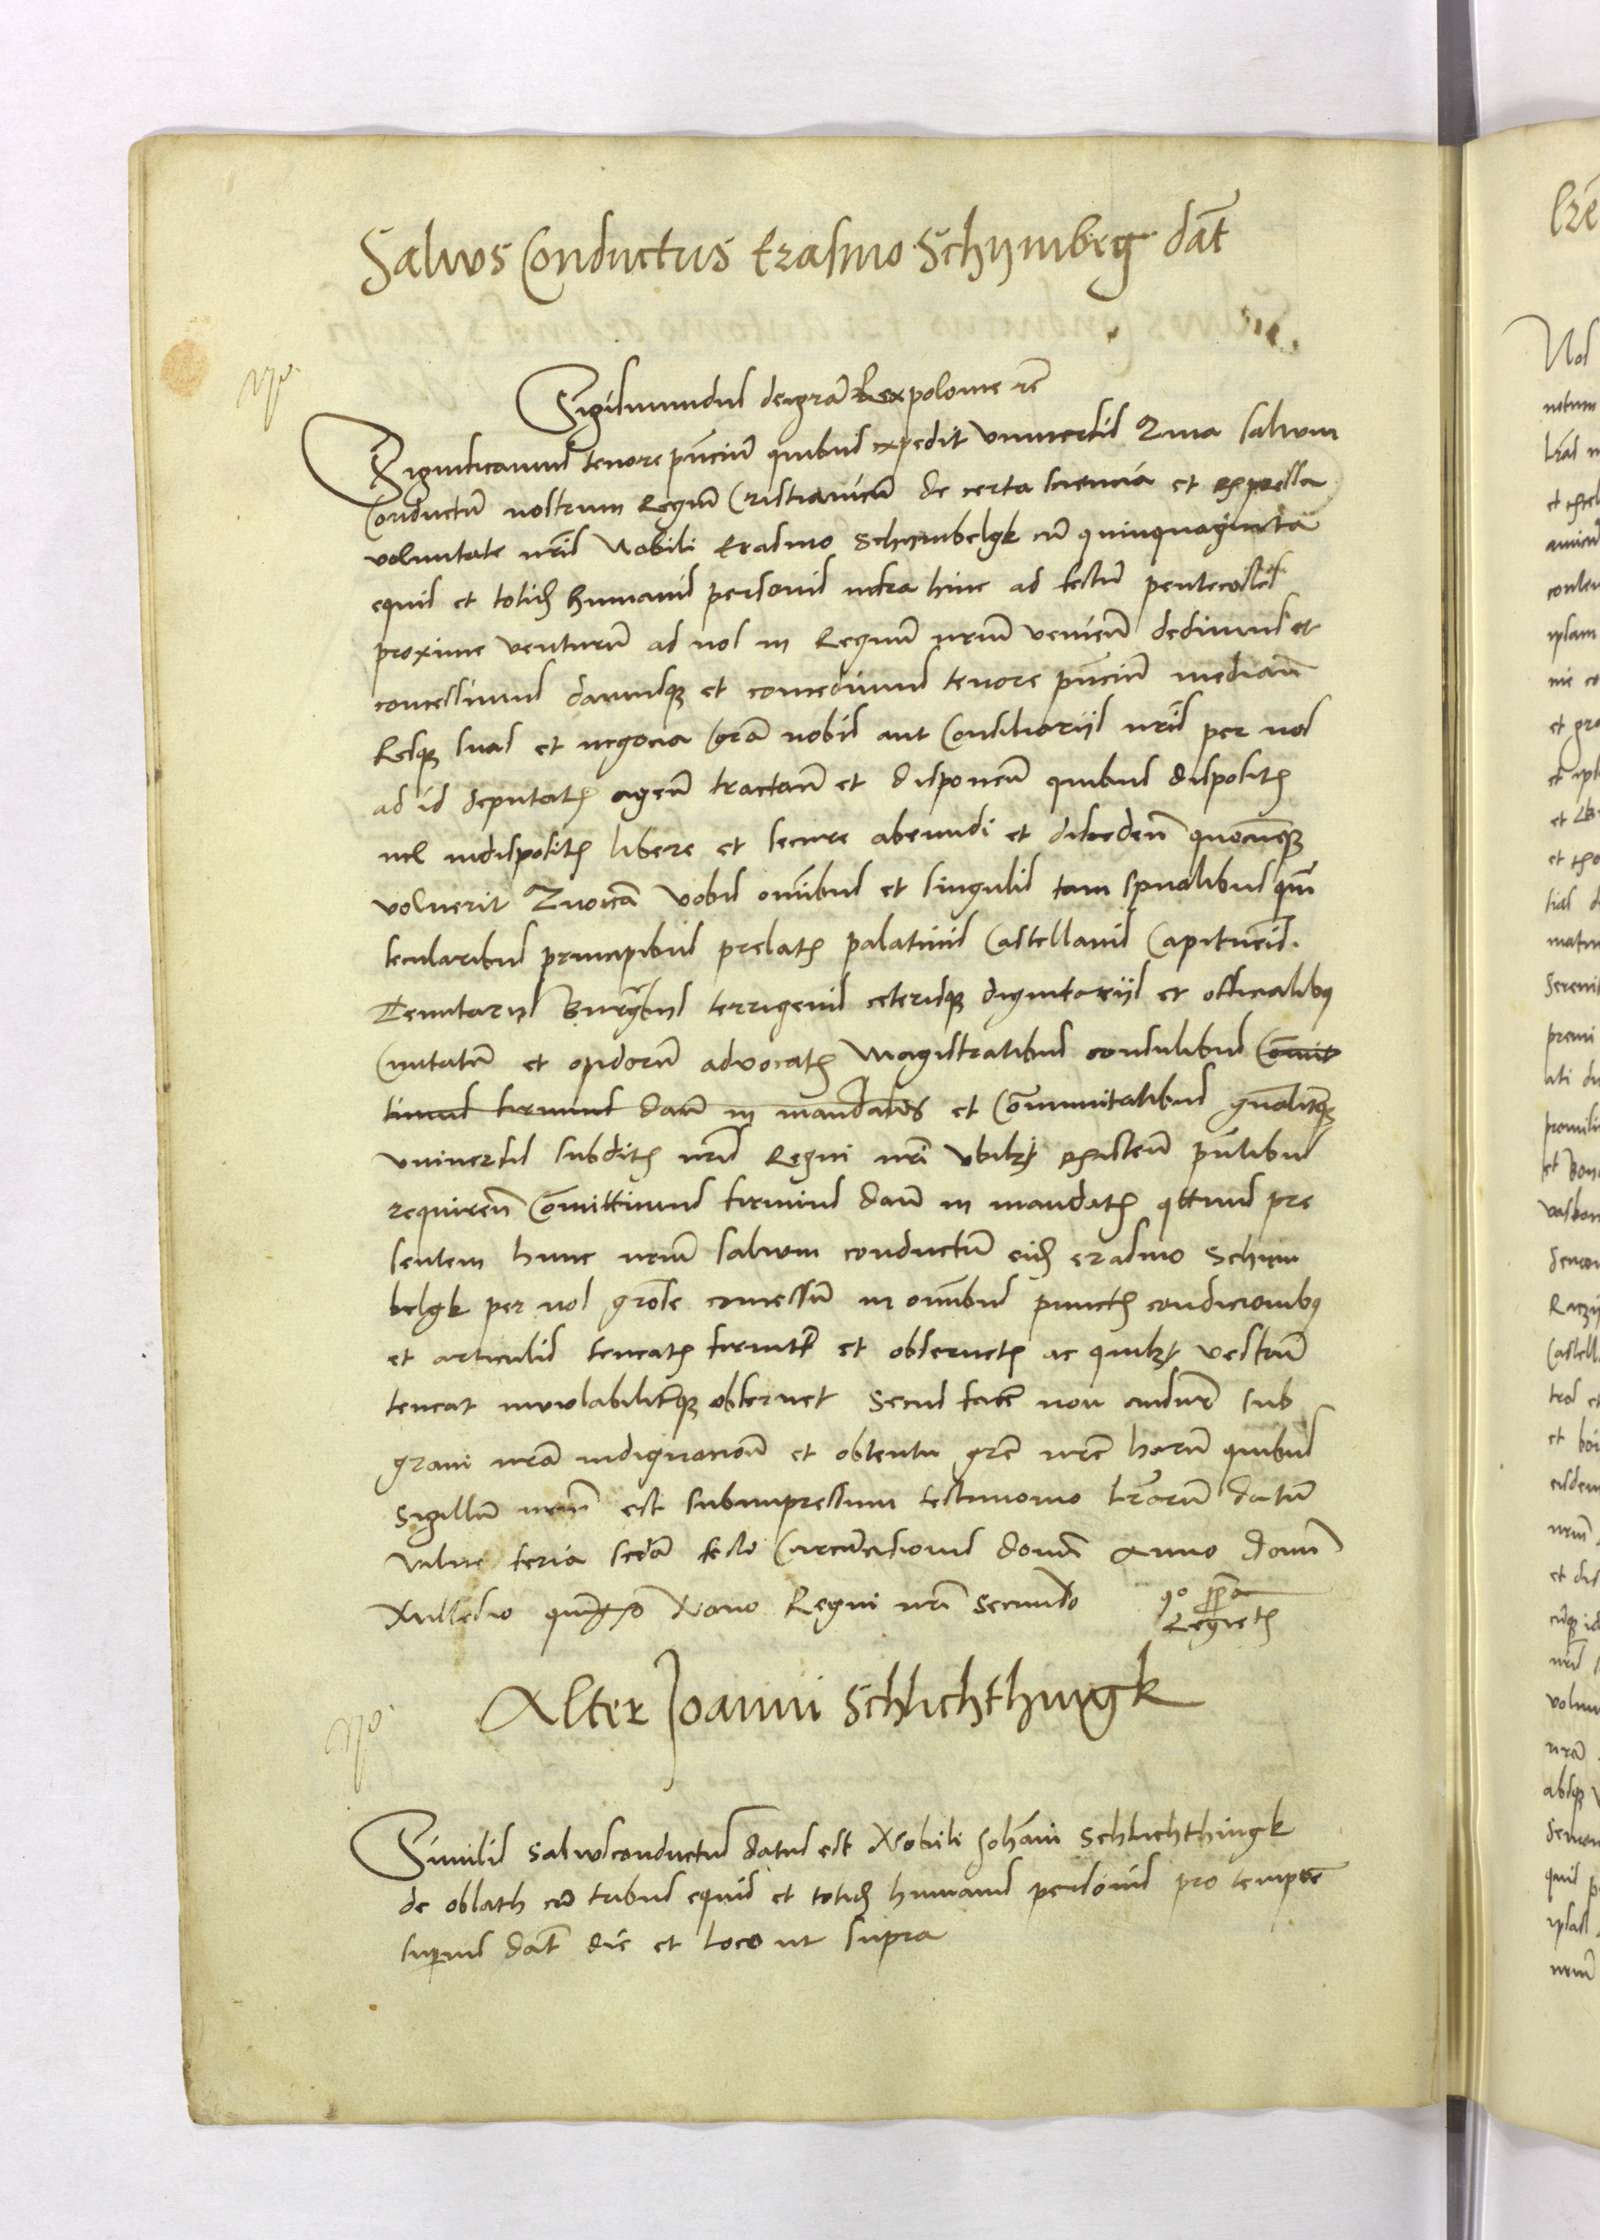 Salvus Conductus Erasmo Schymbeg dat̄
Sigismundus dei grā Rex polonie rc̄
Significamus tenore pn̄ciū quibus expedit vniuersis Quia saluum
Conductū nostrum Regiū Cristianicū de certa sciencia et expressa
voluntate nr̄is Nobili Erasmo Schymbelgk cū quinquaginta
equis et totidē humanis personis infra hinc ad festū pentecostes
proxime venturū ad nos in Regnū nrm̄ veniend̄ dedimus et
concessimus damusqꝫ et concedimus tenore pn̄ciū median̄
Resqꝫ suas et negocia corā nobis aut Consiliarijs nr̄is per nos
ad id deputatis agend̄ tractand̄ et disponend̄ quibus dispositis
vel indispositis libere et secure abeundi et discedend̄ quocunqꝫ
voluerit Quocirca vobis om̄ibus et singulis tam spūalibus qm̄
secularibus principibus prelatis palatinis Castellanis Capitaneis.
Tenutarijs Burgrabijs terrigenis ceterisqꝫ dignitarijs et officialibꝫ
Ciuitatū et opidorū advocatis Magistratibus consulibus Com̄it
timus firmius dan̄ in mandatis et Com̄unitatibus gn̄alitqꝫ
vniuersis subditis nr̄is Regni nr̄i vbilibet existen̄ pn̄tibus
requiren̄ Com̄ittimus firmius dan̄ in mandatis qttnus pre
sentem hunc nrm̄ saluum conductū eidē erasmo Schim
belgk per nos gr̄ose concessū in om̄ibus punctis condicionibꝫ
et articulis teneatis firmitr̄ et obseruetis ac quilibet vestrū
teneat inviolabilitqꝫ obseruet Secus facer̄ non ausuri sub
graui nrā indignacione et obtentu grē nrē harū quibus
Sigillū nrm̄ est subimpressum testimonio lr̄arū datū
Vilne feria scd̄a festo Circūcisionis domī Anno domī
Millesimo quīg̃mo Nono Regni nr̄i Secundo
Alter Joanni Schlichthingk
Similis Saluusconductus datus est Nobili Johāni Schlichthingk
de oblath cū tribus equis et totidē humanis personis pro tempore
suprius dat̄ die et loco ut supra